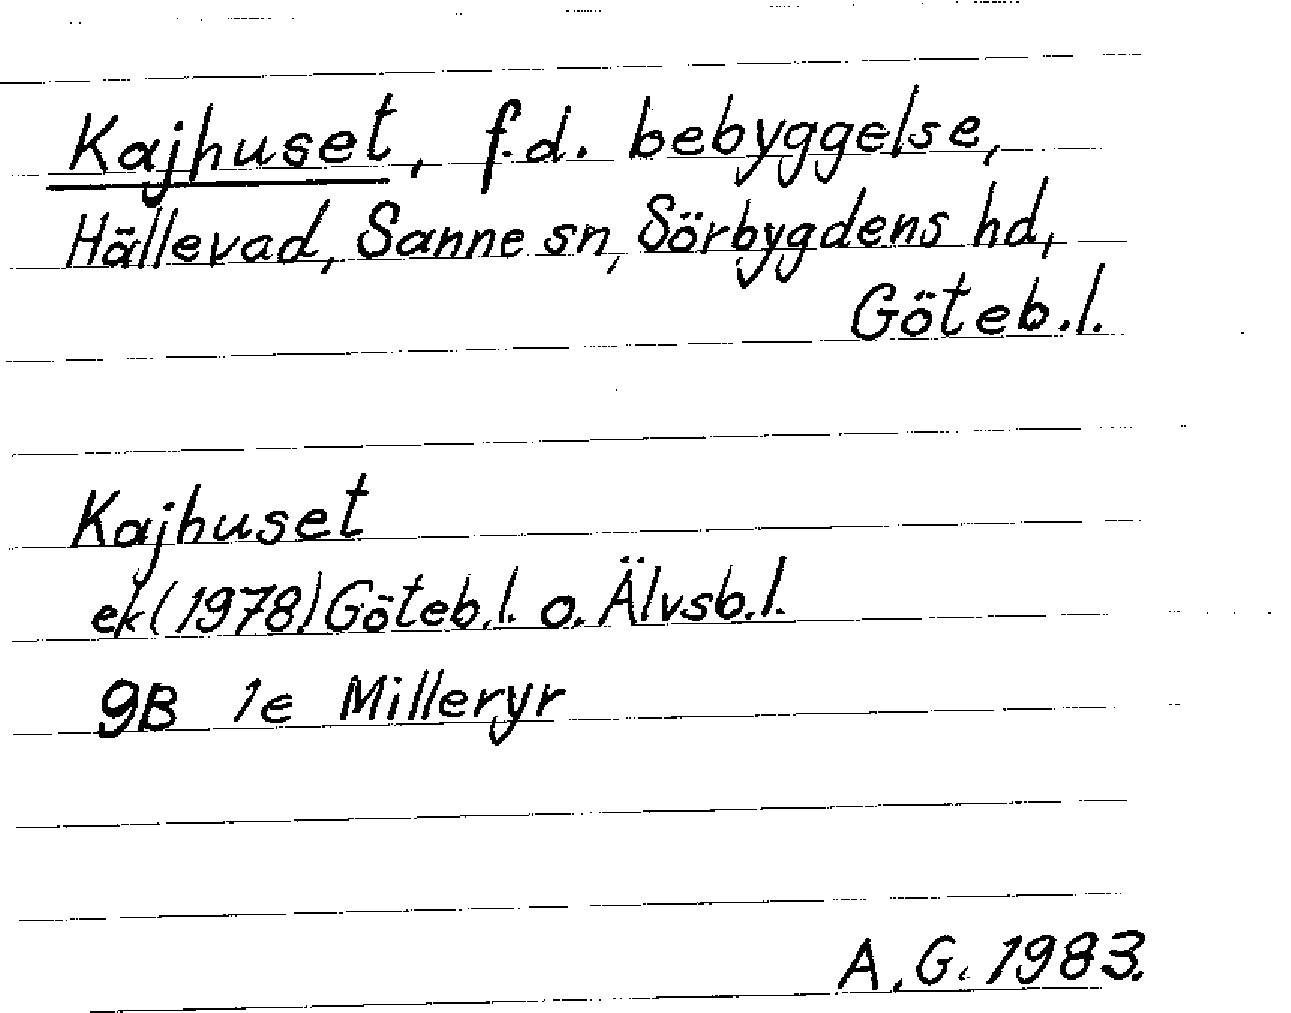 Kajhuset, f.d. bebyggelse,
Hällevad, Sanne sn, Sörbygdens hd,
Göteb.l.
Kajhuset
ek (1978) Göteb.l. o. Älvsb.l.
9B 1e Milleryr
A.G. 1983.